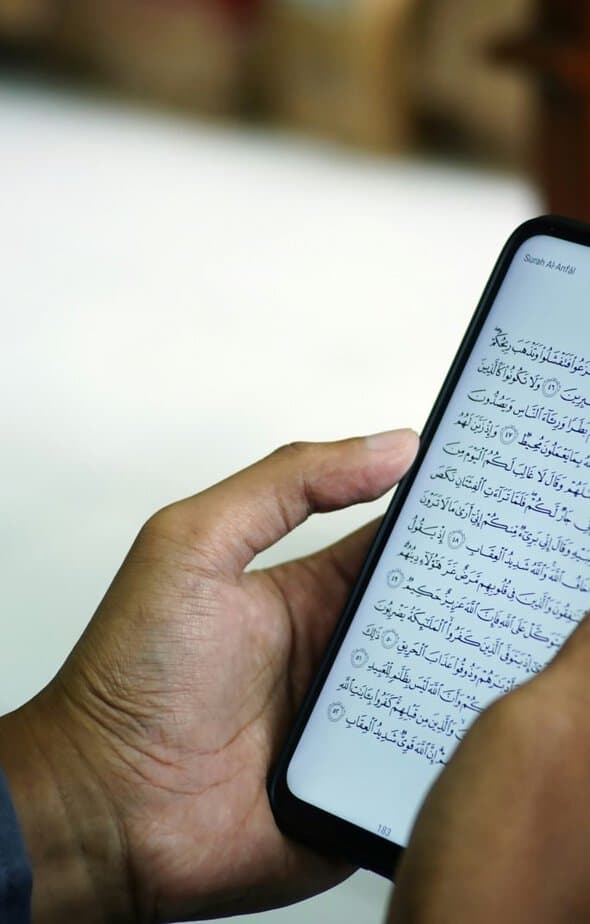 Surah Al-Anfāl
فَتَفْشَلُوا۟ وَتَذْهَبَ رِيحُكُمْ
٤٦ وَلَا تَكُونُوا۟ كَٱلَّذِينَ
بَطَرًا وَرِئَآءَ ٱلنَّاسِ وَيَصُدُّونَ
بِمَا يَعْمَلُونَ مُحِيطٌ ٤٧ وَإِذْ زَيَّنَ لَهُمُ
وَقَالَ لَا غَالِبَ لَكُمُ ٱلْيَوْمَ مِنَ
جَارٌ لَّكُمْ فَلَمَّا تَرَآءَتِ ٱلْفِئَتَانِ نَكَصَ
وَقَالَ إِنِّى بَرِىٓءٌ مِّنكُمْ إِنِّىٓ أَرَىٰ مَا لَا تَرَوْنَ
ٱللَّهَ وَٱللَّهُ شَدِيدُ ٱلْعِقَابِ ٤٨ إِذْ يَقُولُ
وَٱلَّذِينَ فِى قُلُوبِهِم مَّرَضٌ غَرَّ هَٰٓؤُلَآءِ دِينُهُمْ
عَلَى ٱللَّهِ فَإِنَّ ٱللَّهَ عَزِيزٌ حَكِيمٌ ٤٩
إِذْ يَتَوَفَّى ٱلَّذِينَ كَفَرُوا۟ ٱلْمَلَٰٓئِكَةُ يَضْرِبُونَ
وَذُوقُوا۟ عَذَابَ ٱلْحَرِيقِ ٥٠ ذَٰلِكَ
وَأَنَّ ٱللَّهَ لَيْسَ بِظَلَّٰمٍ لِّلْعَبِيدِ ٥١
وَٱلَّذِينَ مِن قَبْلِهِمْ كَفَرُوا۟ بِـَٔايَٰتِ ٱللَّهِ
إِنَّ ٱللَّهَ قَوِىٌّ شَدِيدُ ٱلْعِقَابِ ٥٢
183